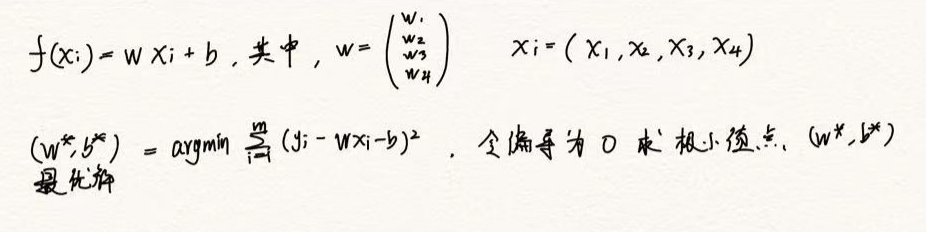 f(xi) = w xi + b , 其中 , w = (w1 w2 w3 w4) xi = ( x1 , x2 , x3 , x4)
(w*, b*) = argmin Σ i=1 m (yi - wxi - b)² . 令偏导为 0 求极小值点. (w*, b*)
最优解